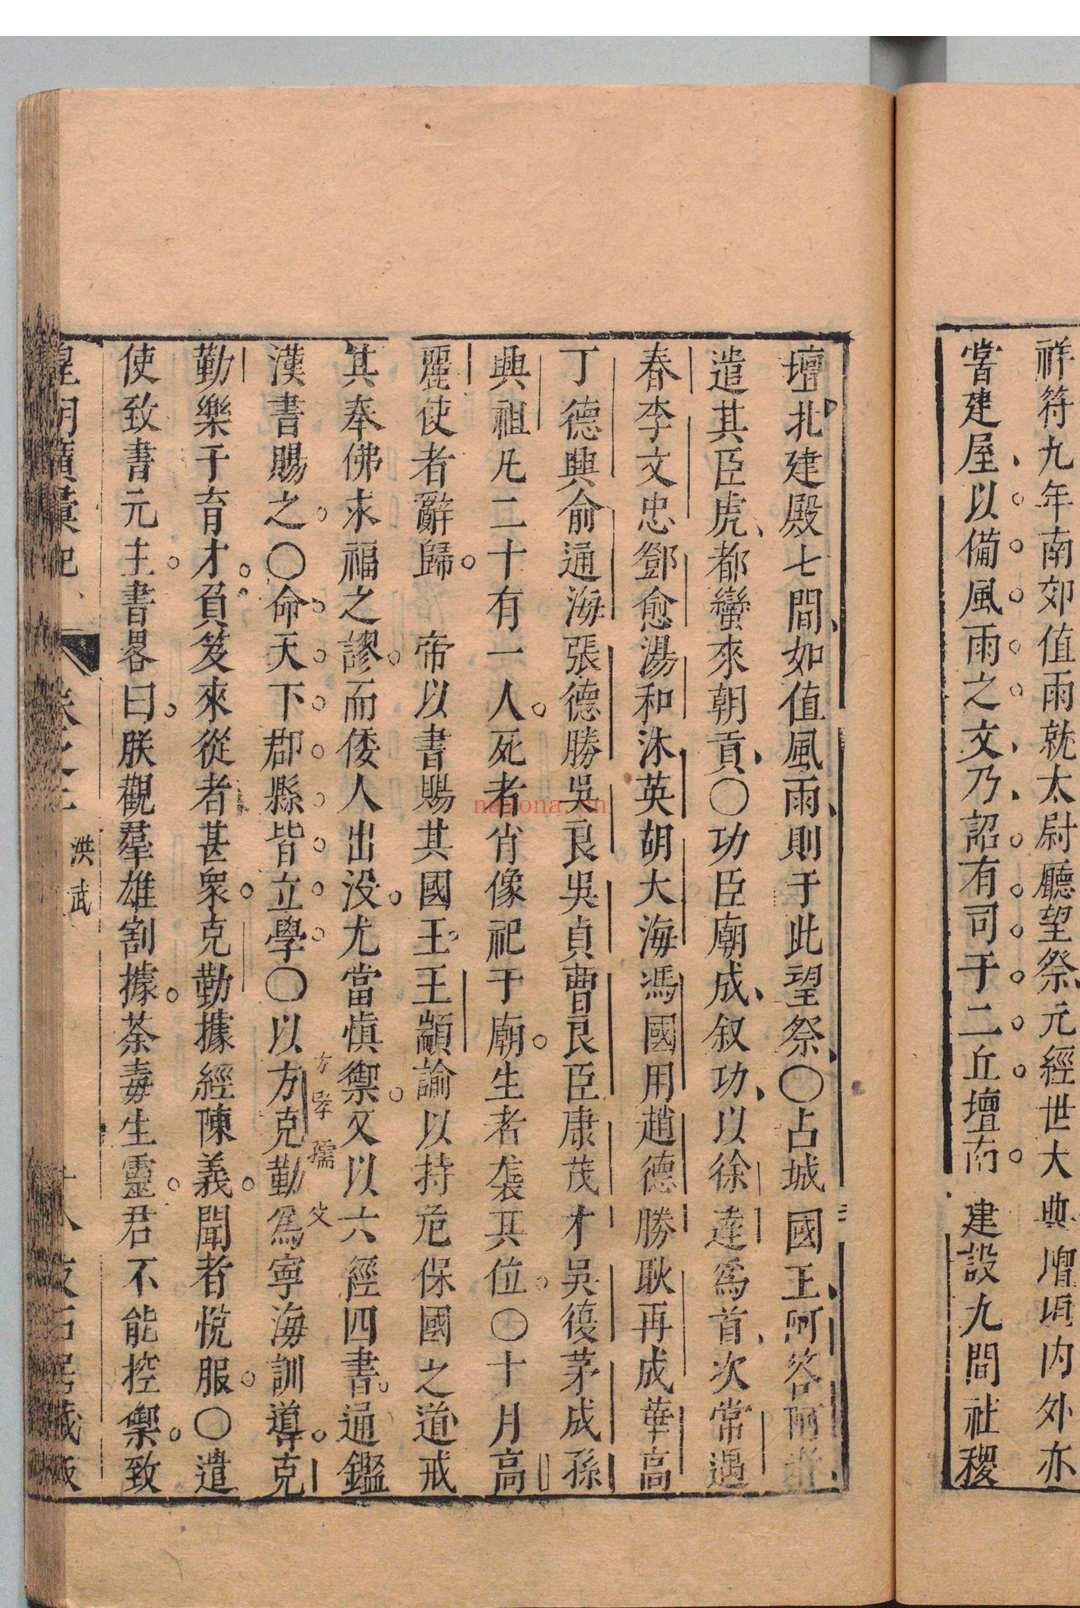 祥符九年南郊值雨就太尉廳望祭元經世大典壇壝内外亦
嘗建屋以備風雨之文乃詔有司于二丘壇南建設九間社稷
壇北建殿七間如值風雨則于此望祭〇占城國王阿答阿者
遣其臣虎都蠻來朝貢〇功臣廟成叙功以徐達爲首次常遇
春李文忠鄧愈湯和沐英胡大海馮國用趙德勝耿再成華高
丁德興俞通海張德勝吳良吳貞曹良臣康茂才吳復茅成孫
興祖凡二十有一人死者肖像祀于廟生者袭其位〇十月高
麗使者辭歸帝以書賜其國王王顓諭以持危保國之道戒
其奉佛求福之謬而倭人出没尤當慎禦又以六經四書通鑑
漢書賜之〇命天下郡縣皆立學〇以方克勤爲寧海訓導克
方孝孺父
勤樂于育才負笈來從者甚衆克勤據經陳義聞者悅服〇遣
使致書元主書畧曰朕觀羣雄割據荼毒生靈君不能控禦致
皇明廣彙紀 卷之三 洪武 十八 友石居藏版
nayona.cn